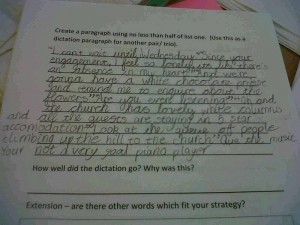 Create a paragraph using no less than half of list one. (Use this as a
dictation paragraph for another pair/ trio).
"I can't wait until Wednesday" "Since your
engagement, I feel so lonely, its like there's
an absence in my heart" and we're
gonna have a white chocolate
and remind me to enquire about the
flowers" "Are you even listening" "Oh and
the church has lovely white columns
and all the guests are staying in 5 star
accomodation" Look at the of people
climbing up the hill to the church" the music
your not a very good piano player
How well did the dictation go? Why was this?
Extension – are there other words which fit your strategy?